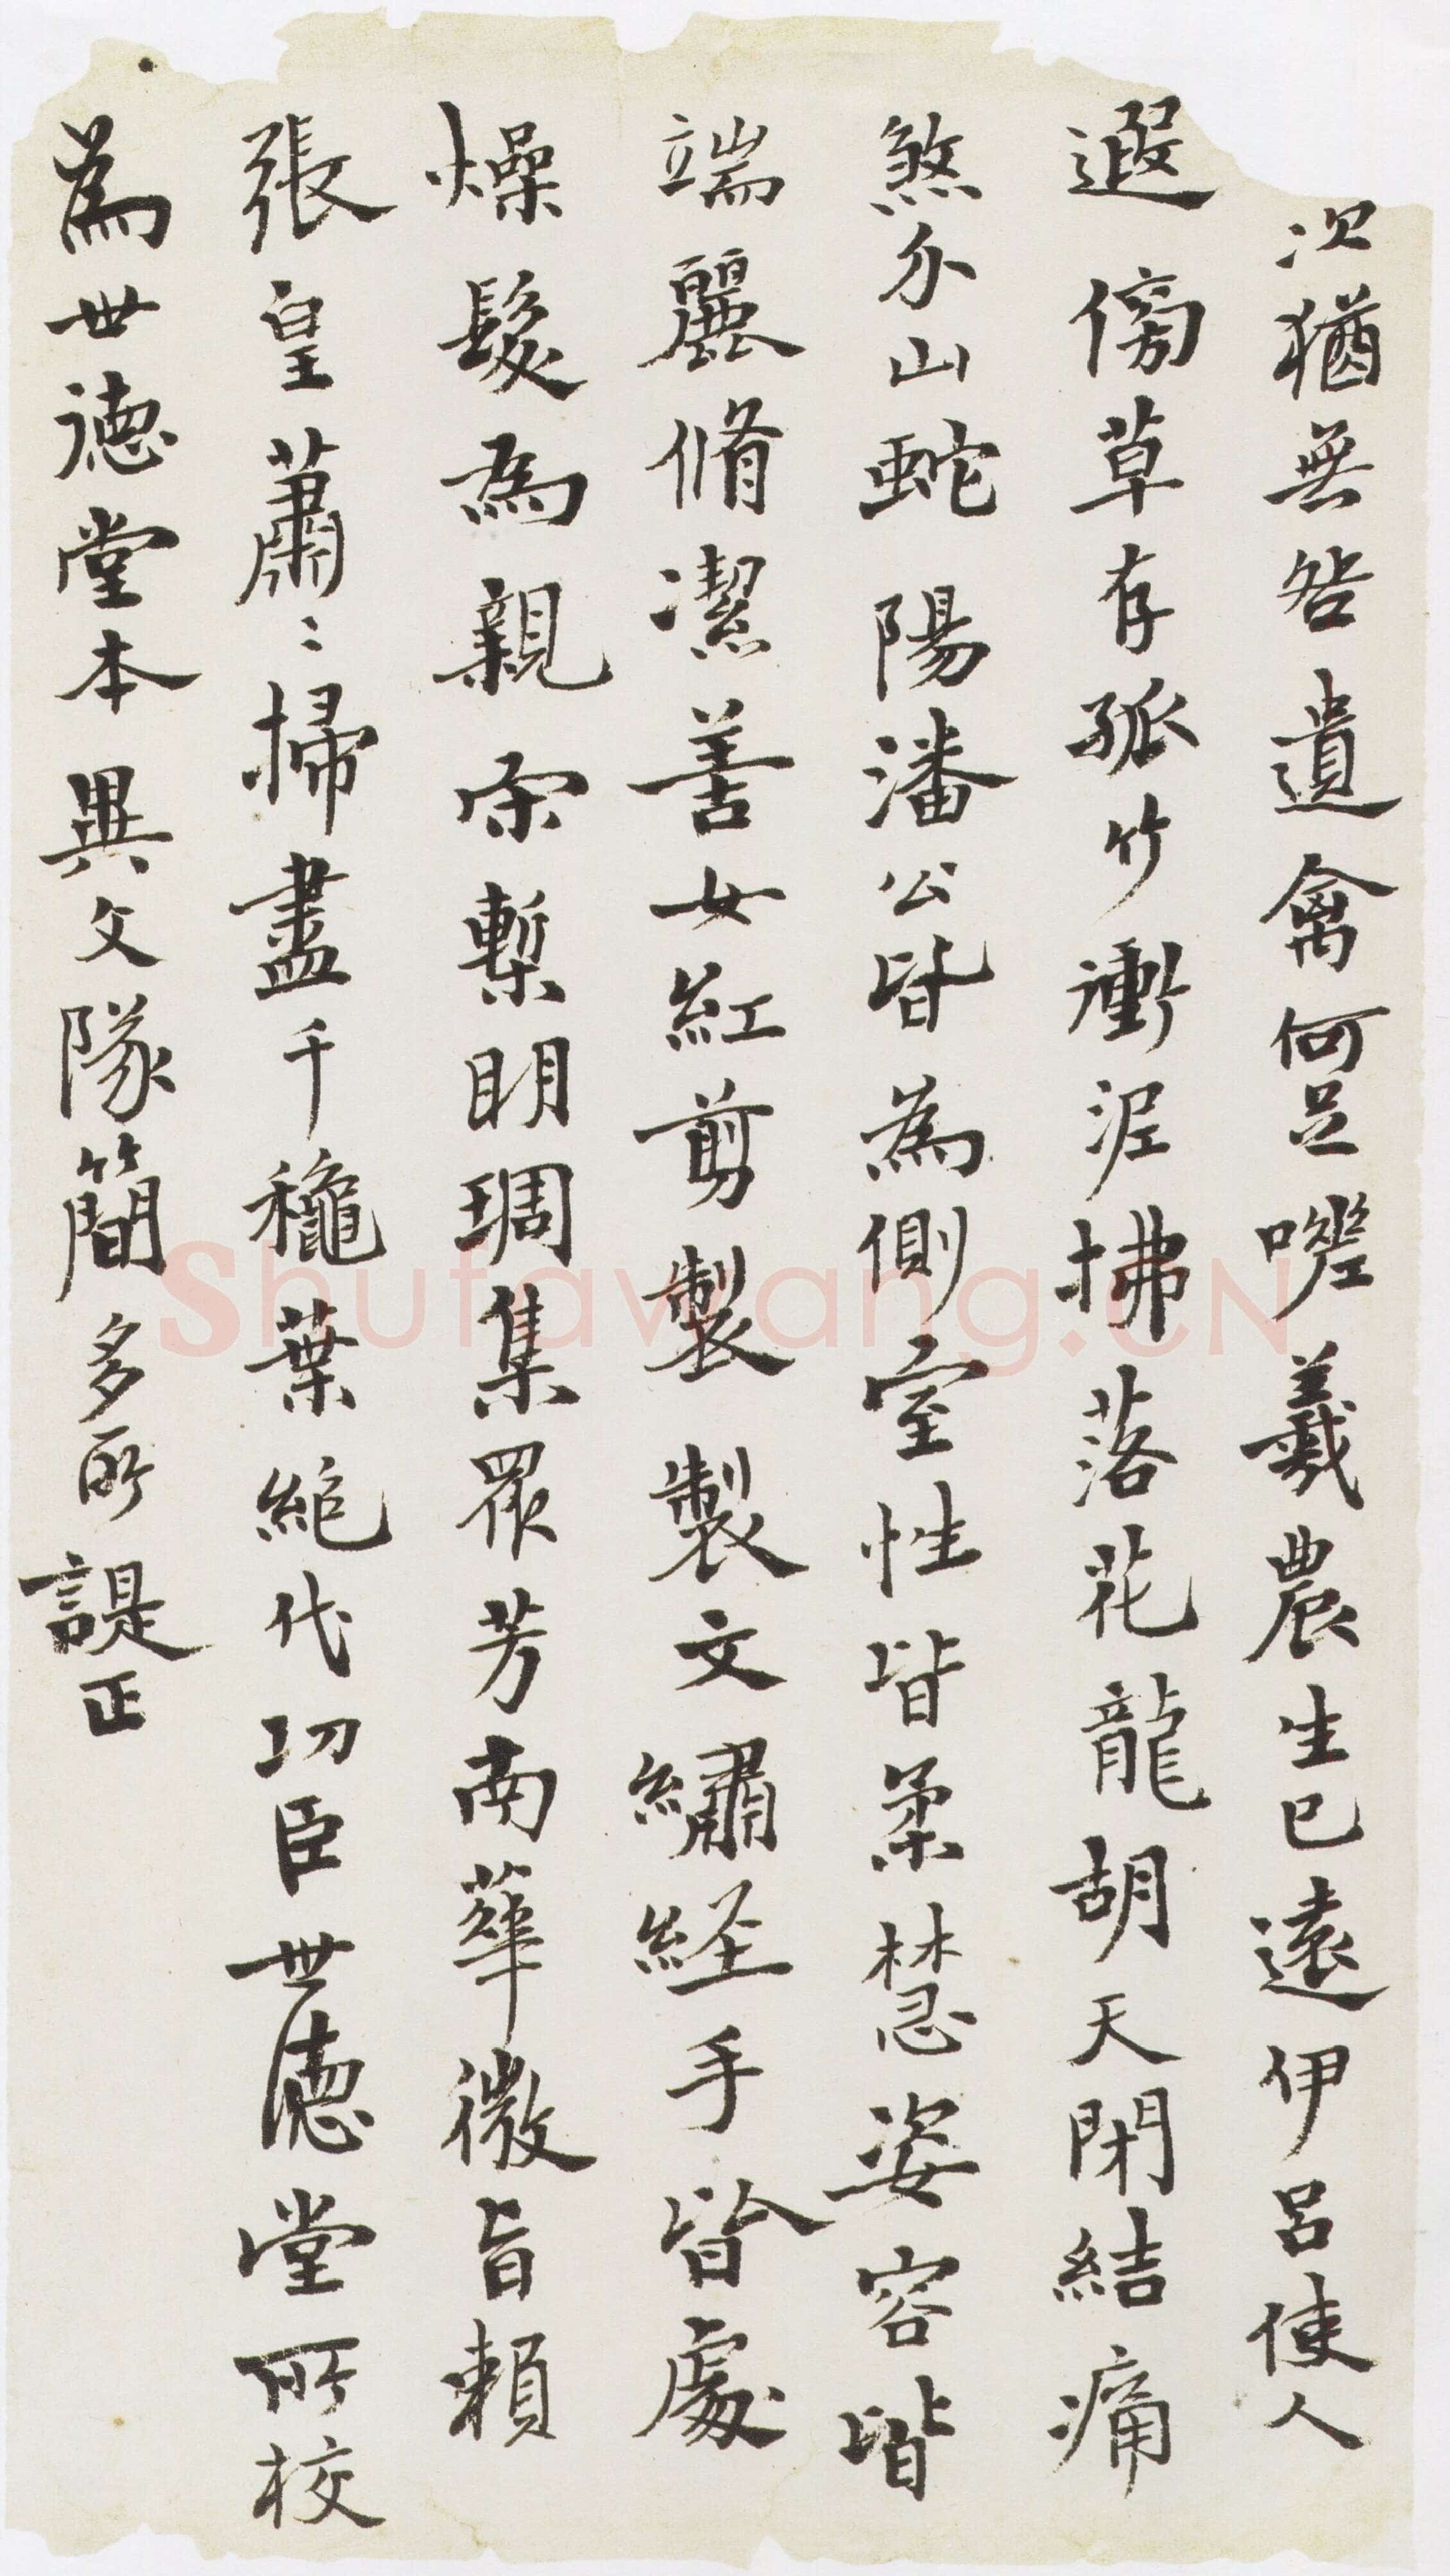 次猶無咎遺禽何足嘆羲農生已遠伊呂使人
遐傍草存孤竹衝泥拂落花龍胡天閉結痛
煞介山蛇陽潘公皆為側室性皆柔慧姿容皆
端麗脩潔善女紅剪製製文繡経手皆處
燥髮為親串槧明琱集眾芳南華微旨賴
張皇蕭〻掃盡千穐葉絕代功臣世德堂所校
為世德堂本異文隊簡多所諟正
Shufawang.CN